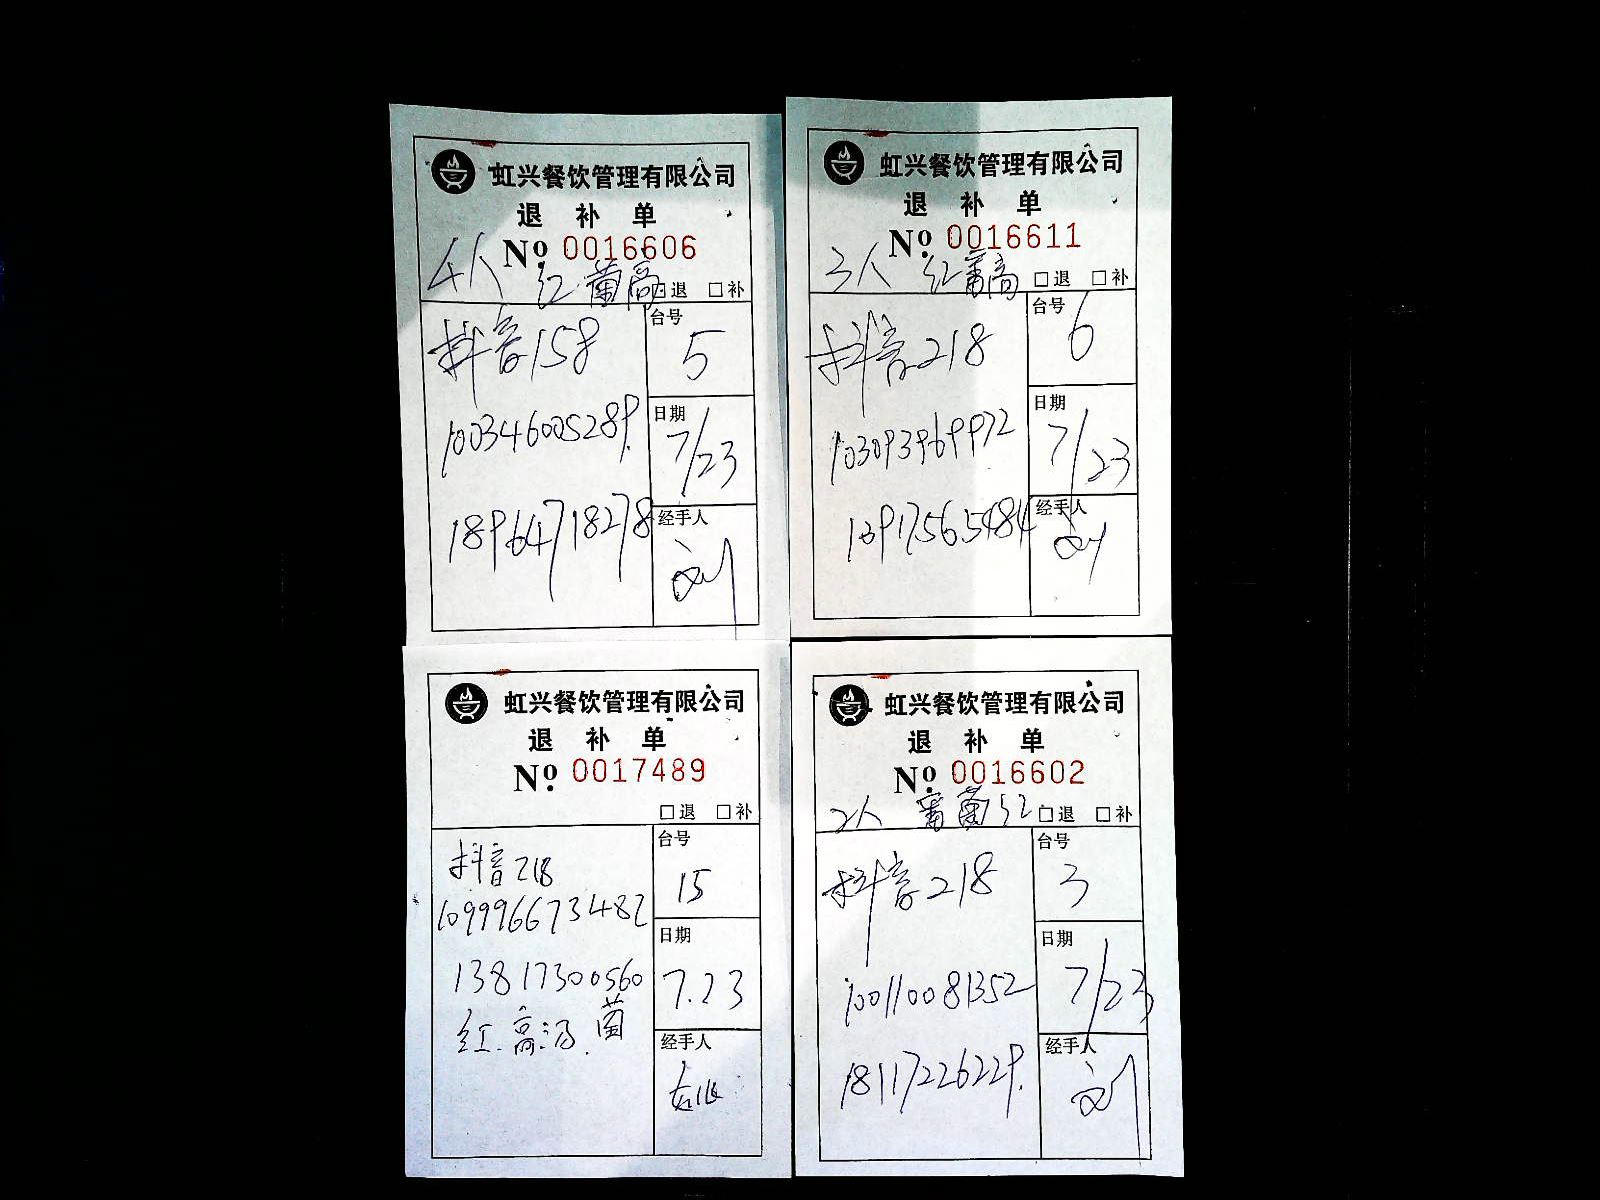 虹兴餐饮管理有限公司
退 补 单
No. 0016606
4人 红.菌高
□退 □补
抖音158
台号
5
100346005289.
日期
7/23
18964718278
经手人
刘
虹兴餐饮管理有限公司
退 补 单
No. 0016611
3人 红番高
□退 □补
抖音218
台号
6
103093969972
日期
7/23
13917565484
经手人
刘
虹兴餐饮管理有限公司
退 补 单
No. 0017489
□退 □补
抖音218
台号
15
109996673482
日期
7.23
13817300560
红.高汤.菌
经手人
虹兴餐饮管理有限公司
退 补 单
No. 0016602
2人 番菌红
□退 □补
抖音218
台号
3
100110081352
日期
7/23
18117226229.
经手人
刘